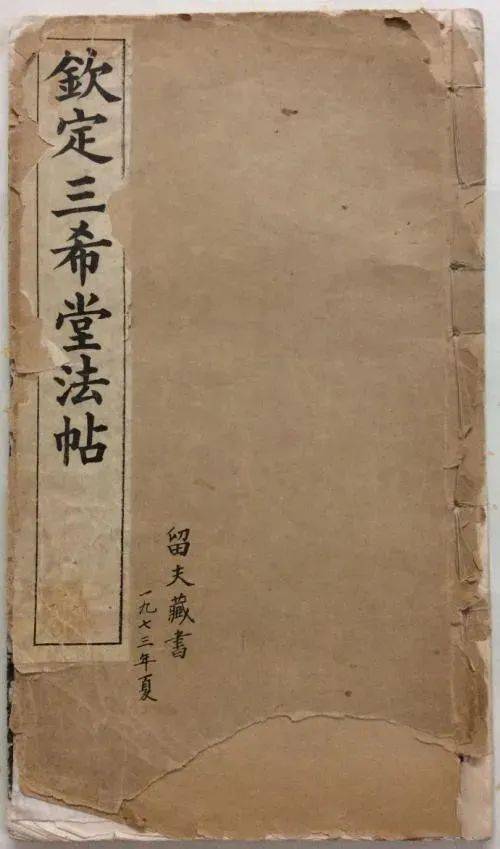 欽定三希堂法帖
留夫藏書
一九七三年夏